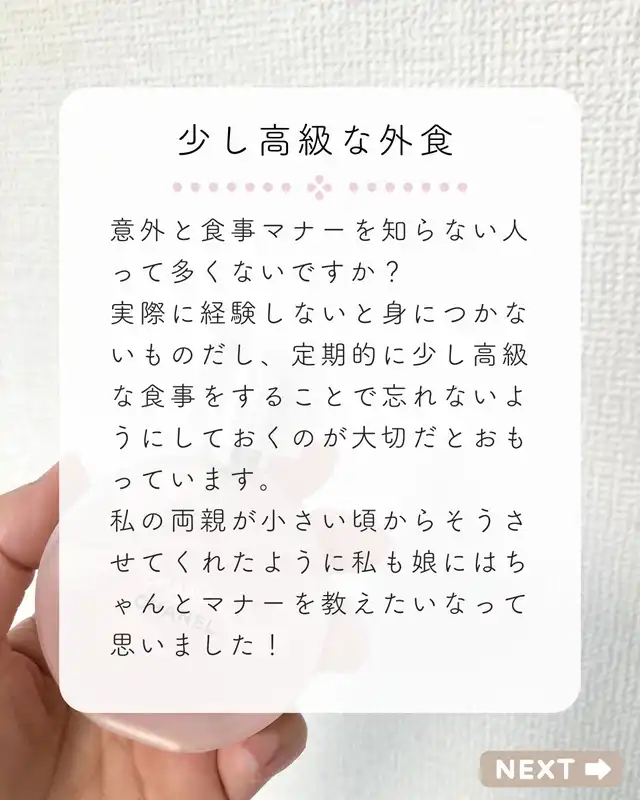 少し高級な外食
意外と食事マナーを知らない人
って多くないですか？
実際に経験しないと身につかな
いものだし、定期的に少し高級
な食事をすることで忘れないよ
うにしておくのが大切だとおも
っています。
私の両親が小さい頃からそうさ
せてくれたように私も娘にはち
ゃんとマナーを教えたいなって
思いました！
CHANEL
NEXT